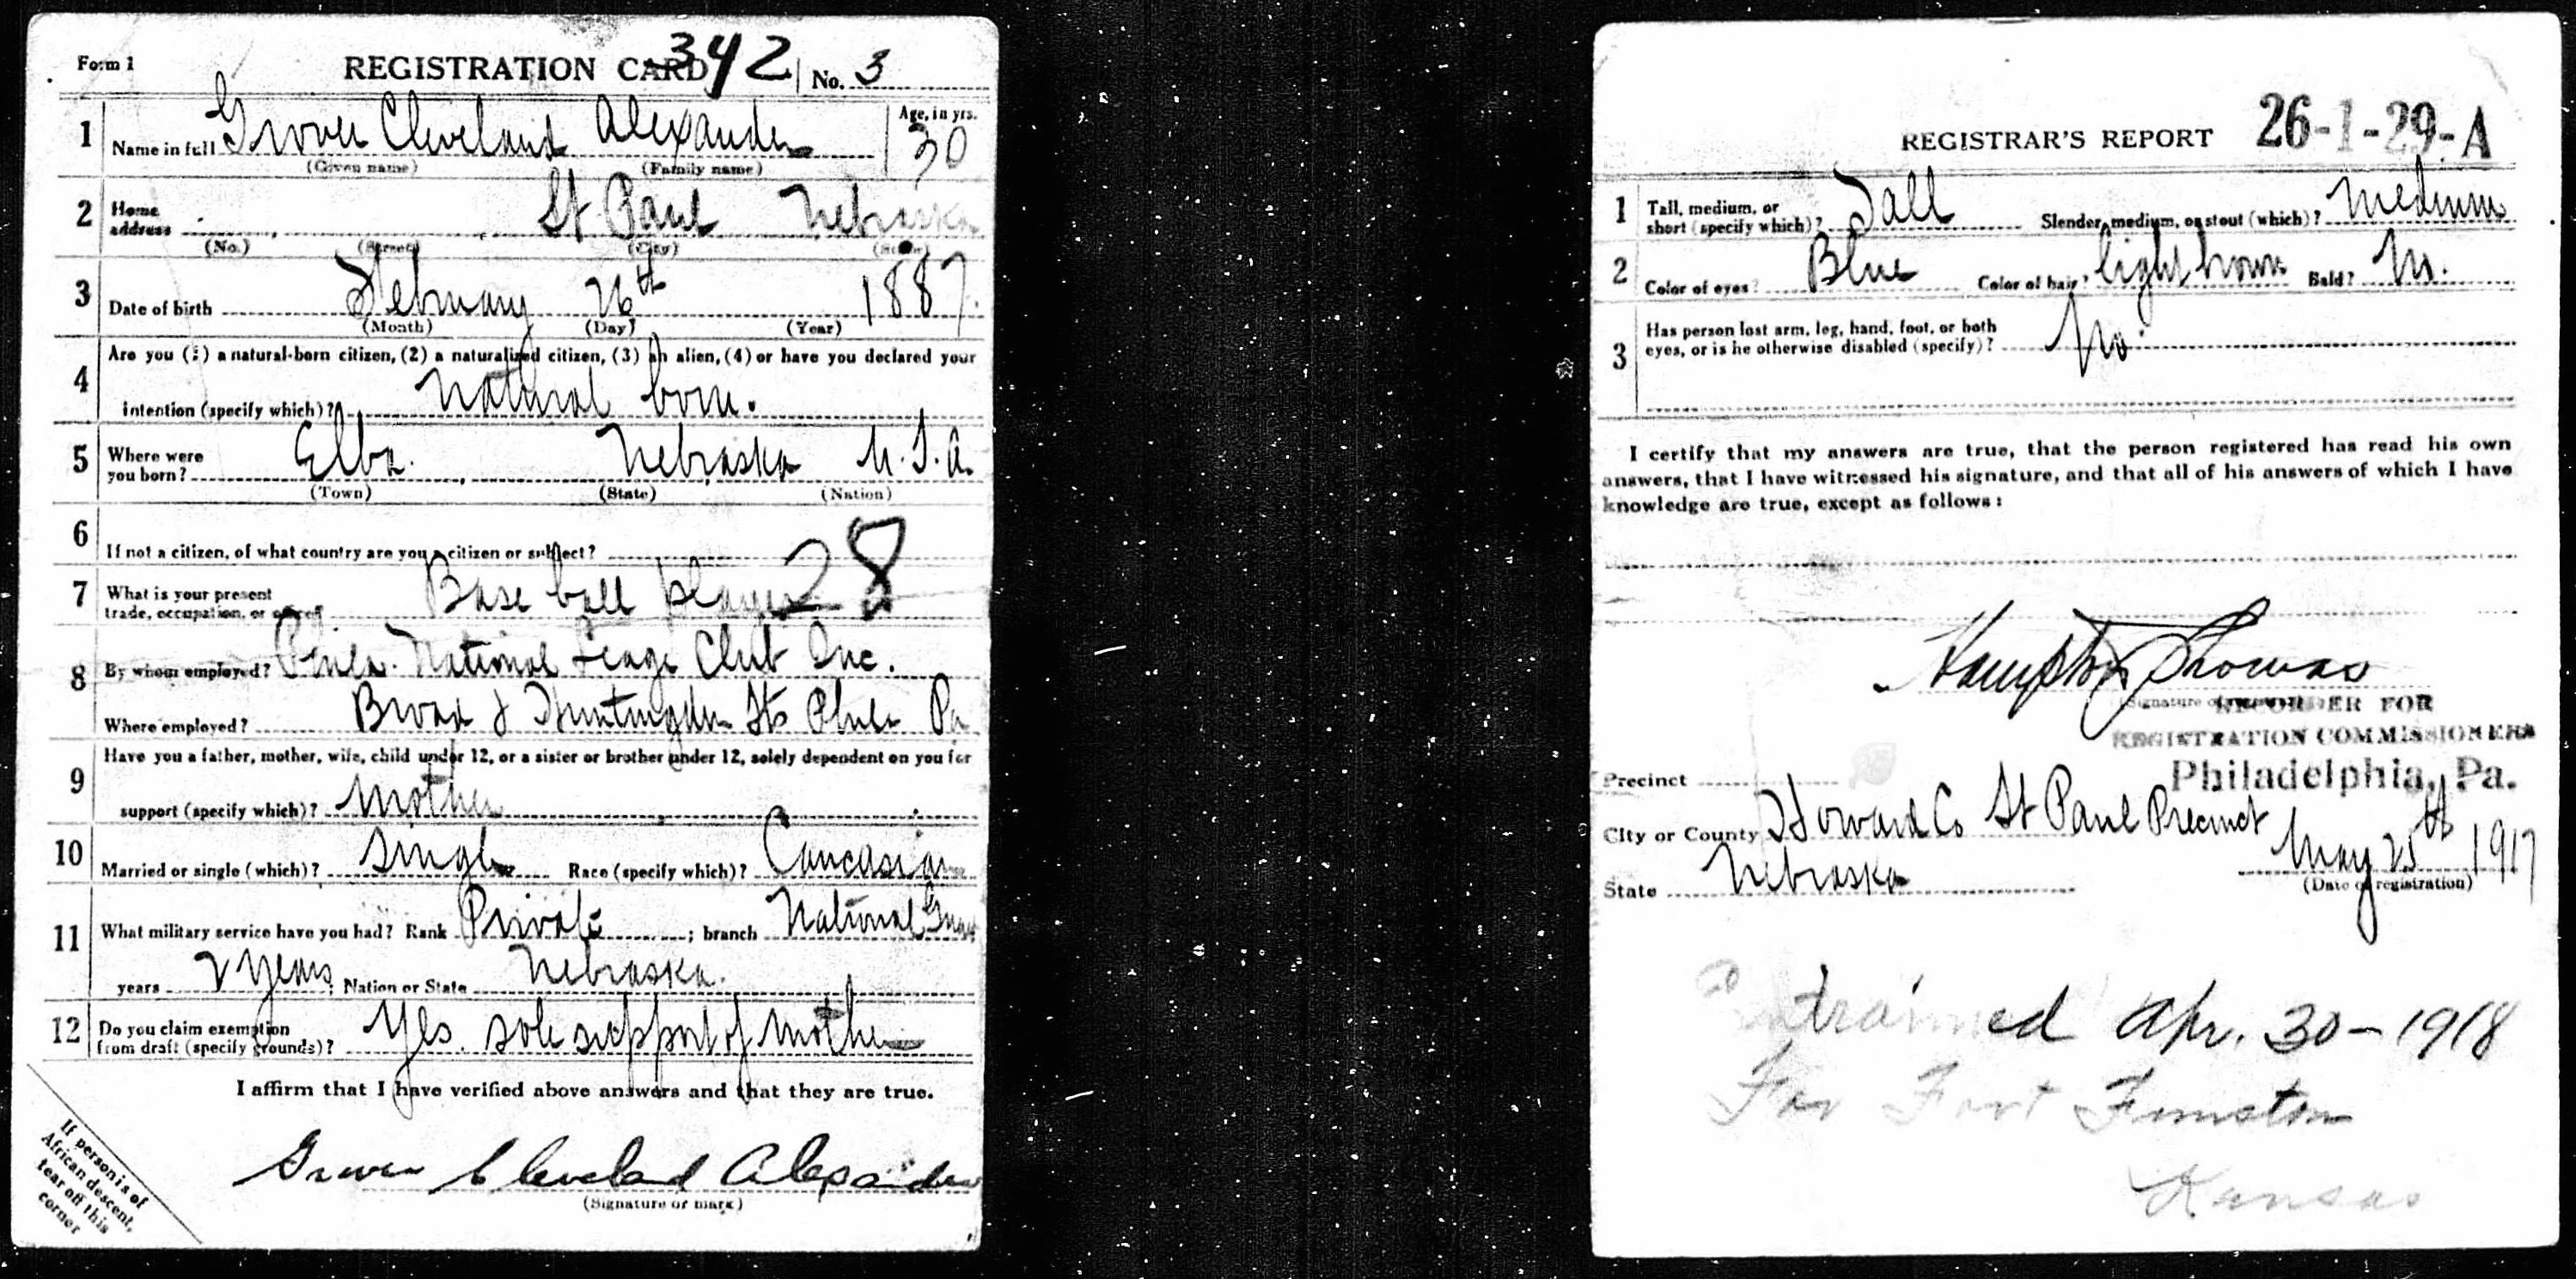 Form 1
REGISTRATION CARD 342 No. 3
1 Name in full Grover Cleveland Alexander Age, in yrs. 30
(Given name) (Family name)
2 Home address St Paul Nebraska
(No.) (Street) (City) (State)
3 Date of birth February 26th 1887
(Month) (Day) (Year)
4 Are you (1) a natural-born citizen, (2) a naturalized citizen, (3) an alien, (4) or have you declared your
intention (specify which)? natural born.
5 Where were you born? Elba. Nebraska U.S.A.
(Town) (State) (Nation)
6 If not a citizen, of what country are you a citizen or subject?
7 What is your present trade, occupation, or office? Base ball player 28
8 By whom employed? Phila. National Leage Club Inc.
Where employed? Broad & Huntingdon Sts Phila Pa
9 Have you a father, mother, wife, child under 12, or a sister or brother under 12, solely dependent on you for
support (specify which)? Mother
10 Married or single (which)? Single Race (specify which)? Caucasian
11 What military service have you had? Rank Private ; branch National Guard
years 2 years ; Nation or State Nebraska.
12 Do you claim exemption from draft (specify grounds)? Yes. sole support of mother
I affirm that I have verified above answers and that they are true.
Grover Cleveland Alexander
(Signature or mark)
If person is of
African descent,
tear off this
corner
REGISTRAR'S REPORT 26-1-29-A
1 Tall, medium, or short (specify which)? Tall Slender, medium, or stout (which)? Medium
2 Color of eyes? Blue Color of hair? light brown Bald? No.
3 Has person lost arm, leg, hand, foot, or both
eyes, or is he otherwise disabled (specify)? No.
I certify that my answers are true, that the person registered has read his own
answers, that I have witnessed his signature, and that all of his answers of which I have
knowledge are true, except as follows:
Hampton Thomas
(Signature of
RECORDER FOR
REGISTRATION COMMISSIONERS
Philadelphia, Pa.
Precinct
City or County Howard Co St Paul Precinct
State Nebraska May 25th 1917
(Date of registration)
Entrained Apr. 30-1918
For Fort Funston
Kansas